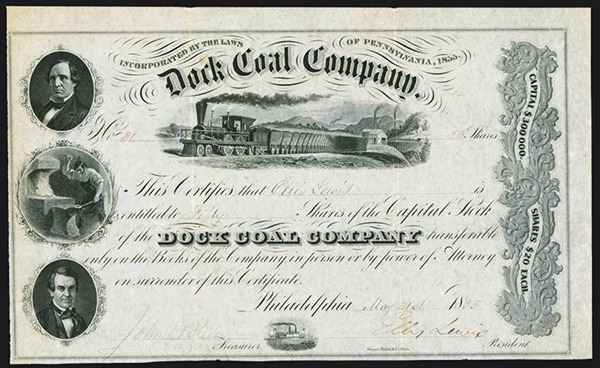 INCORPORATED BY THE LAWS OF PENNSYLVANIA, 1855.
Dock Coal Company.
No. 81 50 Shares
This Certifies that Ellis Lewis is
entitled to Fifty Shares of the Capital Stock
of the DOCK COAL COMPANY transferable
only on the Books of the Company in person or by power of Attorney
on surrender of this Certificate.
Philadelphia May 21st 1855
Ellis Lewis
Treasurer. President.
CAPITAL $300,000.
SHARES $20 EACH.